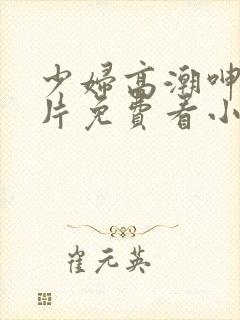 少婦高潮呻
片免費看小
崔元英